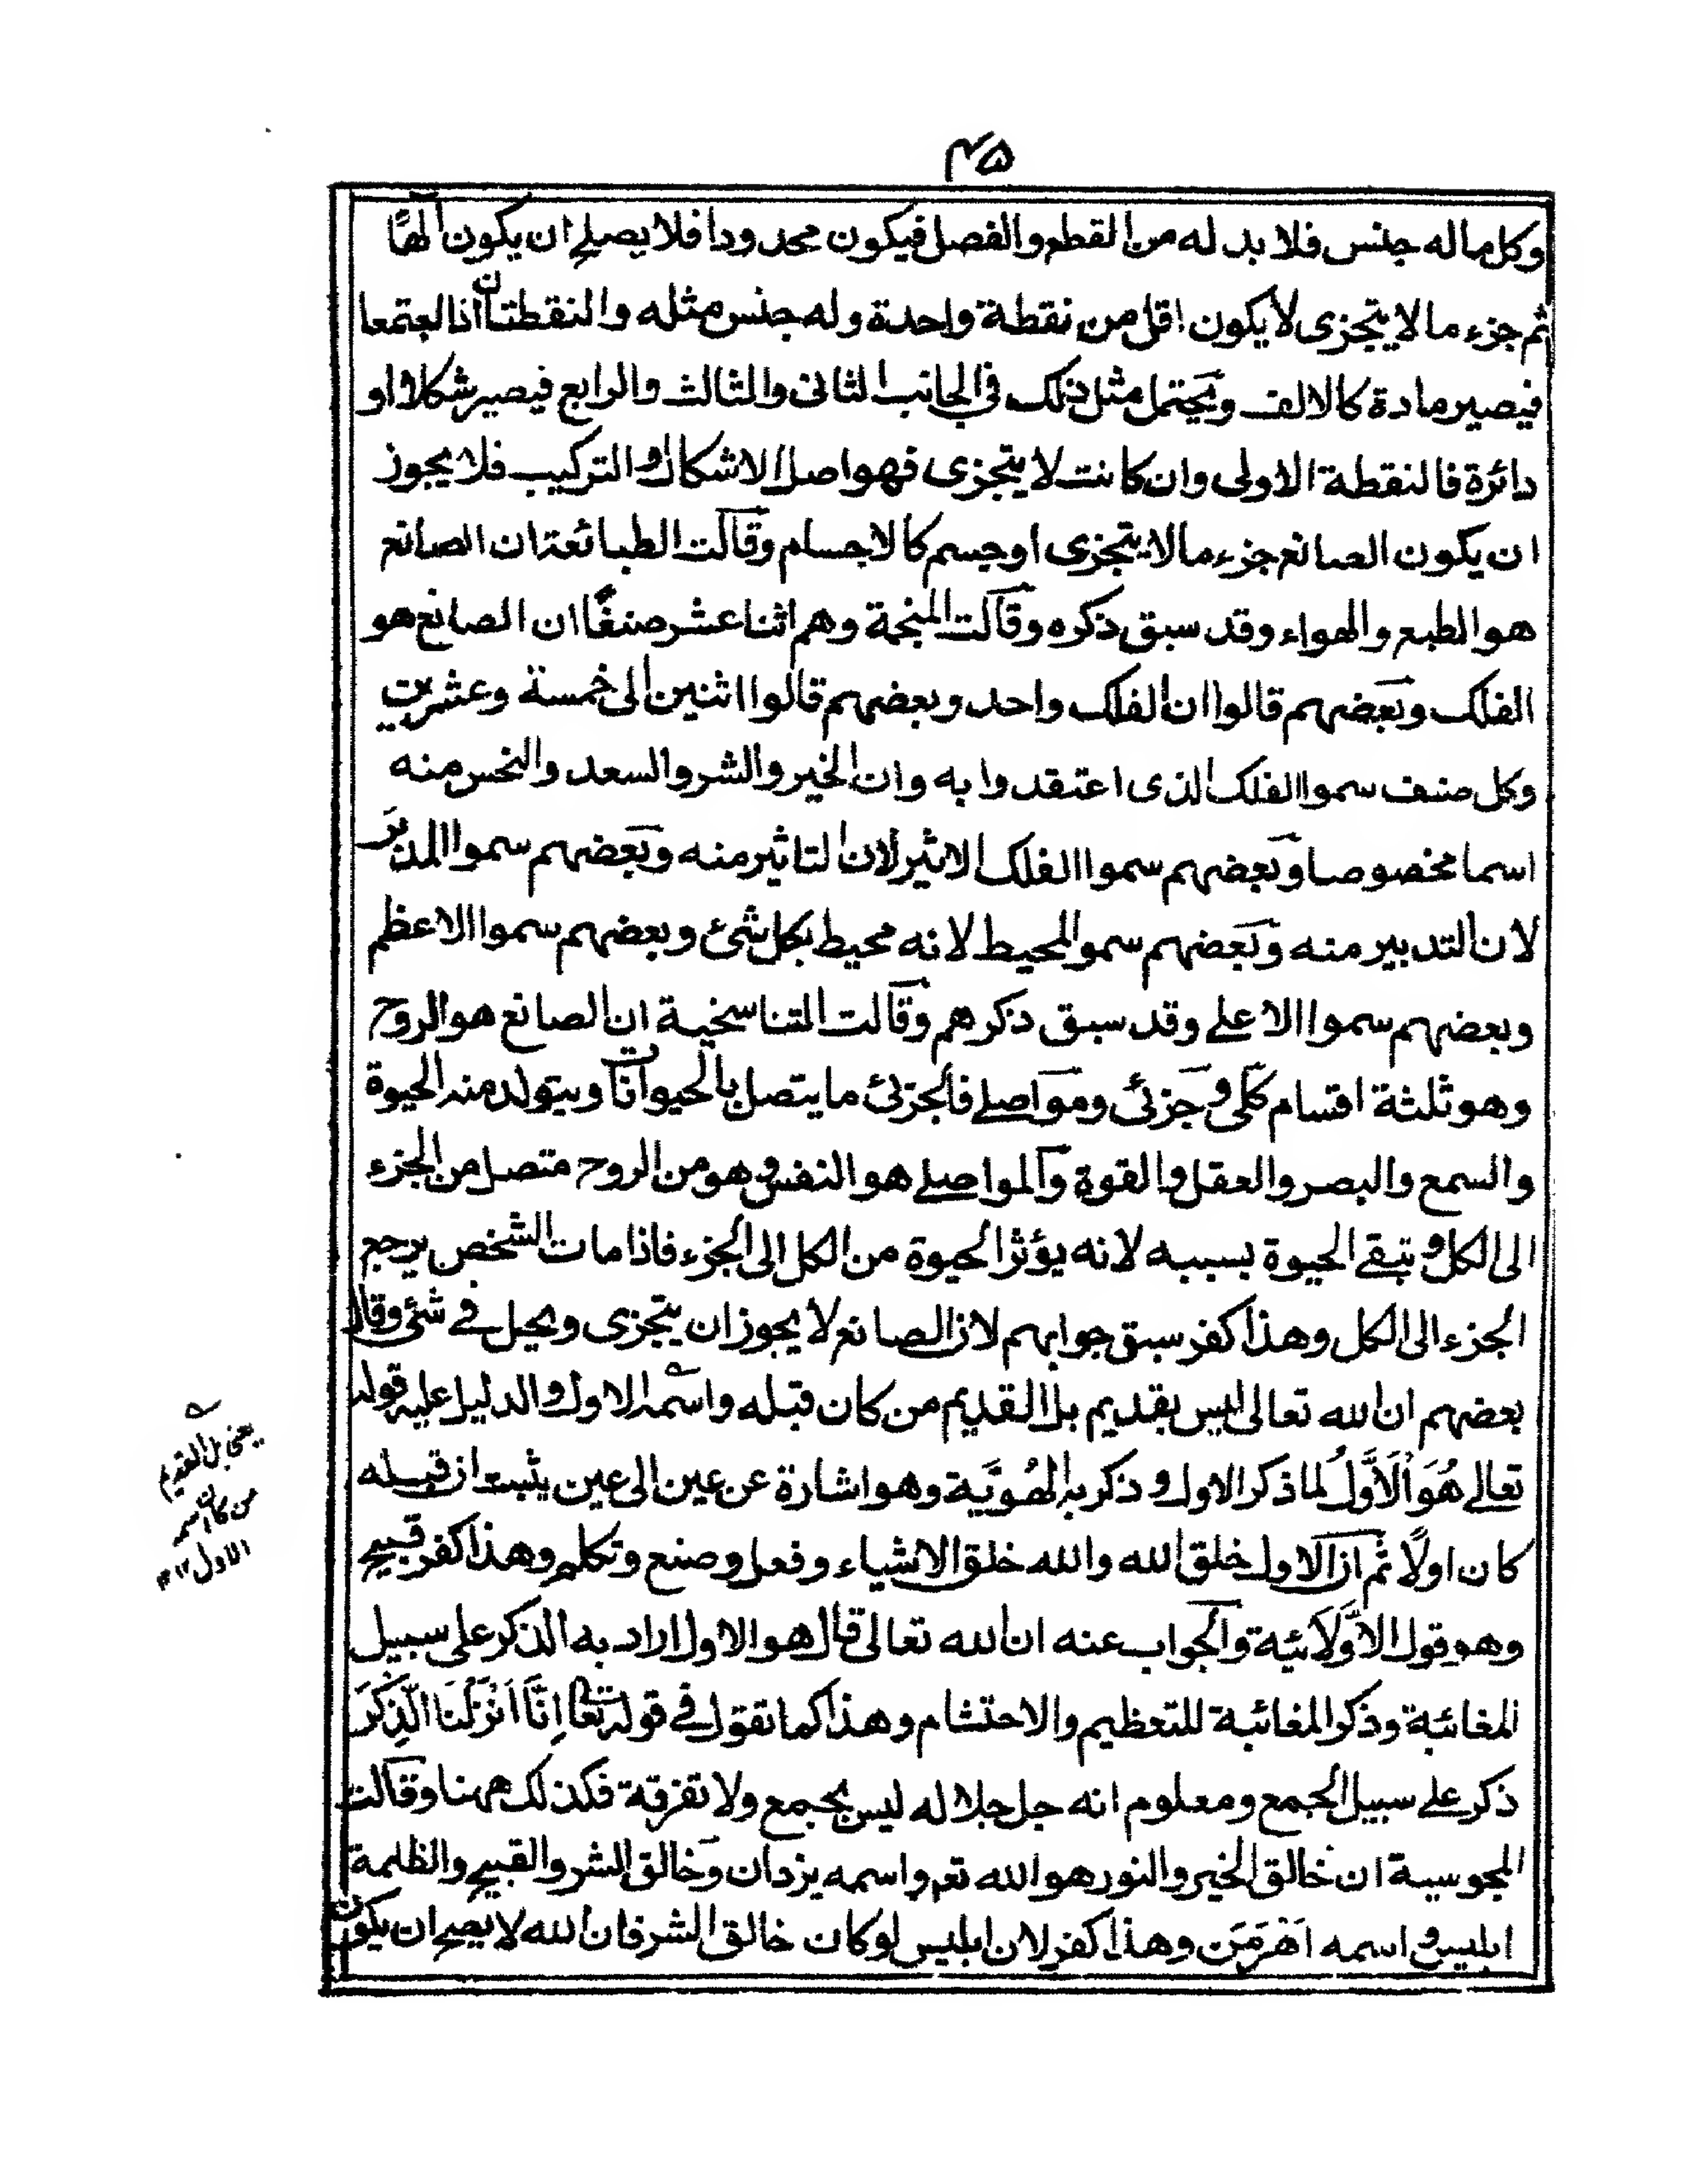 ٤٥
وكل ماله جنس فلا بد له من القطع والفصل فيكون محدودا فلا يصلح ان يكون الٰهًا
ثم جزء ما لا يتجزى لا يكون اقل من نقطة واحدة وله جنس مثله والنقطتان اذا اجتمعا
فيصير مادة كالالف ويحتمل مثل ذلك فى الجانب الثانى والثالث والرابع فيصير شكلا او
دائرة فالنقطة الاولى وان كانت لا يتجزى فهو اصل الاشكال والتركيب فلا يجوز
ان يكون الصانع جزء مالا يتجزى او جسم كالاجسام وقالت الطبائعة ان الصانع
هو الطبع والهواء وقد سبق ذكره وقالت المنجمة وهم اثنا عشر صنفًا ان الصانع هو
الفلك وبعضهم قالوا ان الفلك واحد وبعضهم قالوا اثنين الى خمسة وعشرين
وكل صنف سموا الفلك الذى اعتقدوا به وان الخير والشر والسعد والنحس منه
اسما مخصوصا وبعضهم سموا الفلك الاثير لان التاثير منه وبعضهم سموا المدبر
لان التدبير منه وبعضهم سموا المحيط لانه محيط بكل شئ وبعضهم سموا الاعظم
وبعضهم سموا الاعلے وقد سبق ذكرهم وقالت التناسخية ان الصانع هو الروح
وهو ثلثة اقسام كلى وجزئى ومواصلے فالجزئى ما يتصل بالحيوانات ويتولد منه الحيوة
والسمع والبصر والعقل والقوة والمواصلے هو النفس وهو من الروح متصل من الجزء
الى الكل وتبقے الحيوة بسببه لانه يؤثر الحيوة من الكل الى الجزء فاذا مات الشخص يرجع
الجزء الى الكل وهذا كفر سبق جوابهم لان الصانع لا يجوز ان يتجزى ويحل فے شئ وقال
بعضهم ان الله تعالى ليس بقديم بل القديم من كان قبله واسمه الاول والدليل عليه قوله
تعالے هُوَ الْاَوَّلُ لما ذكر الاول وذكر به الهُوِيَّة وهو اشارة عن عين الى عين يثبت ان قبله
كان اولًا ثم ان الاول خلق الله والله خلق الاشياء وفعل وصنع وتكلم وهذا كفر قبيح
وهو قول الاَوَّلَائية والجواب عنه ان الله تعالى قال هو الاول اراد به الذكر على سبيل
المغائبة وذكر المغائبة للتعظيم والاحتشام وهذا كما نقول فے قوله تعا اِنَّا اَنْزَلْنَا الذِّكْرَ
ذكر علے سبيل الجمع ومعلوم انه جل جلاله ليس بجمع ولا تفرقة فكذلك ههنا وقالت
المجوسية ان خالق الخير والنور هو الله تعم واسمه يزدان وخالق الشر والقبيح والظلمة
ابليس واسمه اَهْرَمَن وهذا كفر لان ابليس لو كان خالق الشر فان الله لا يصح ان يكون
يعنى بل القديم
من كان اسمه
الاول ١٢